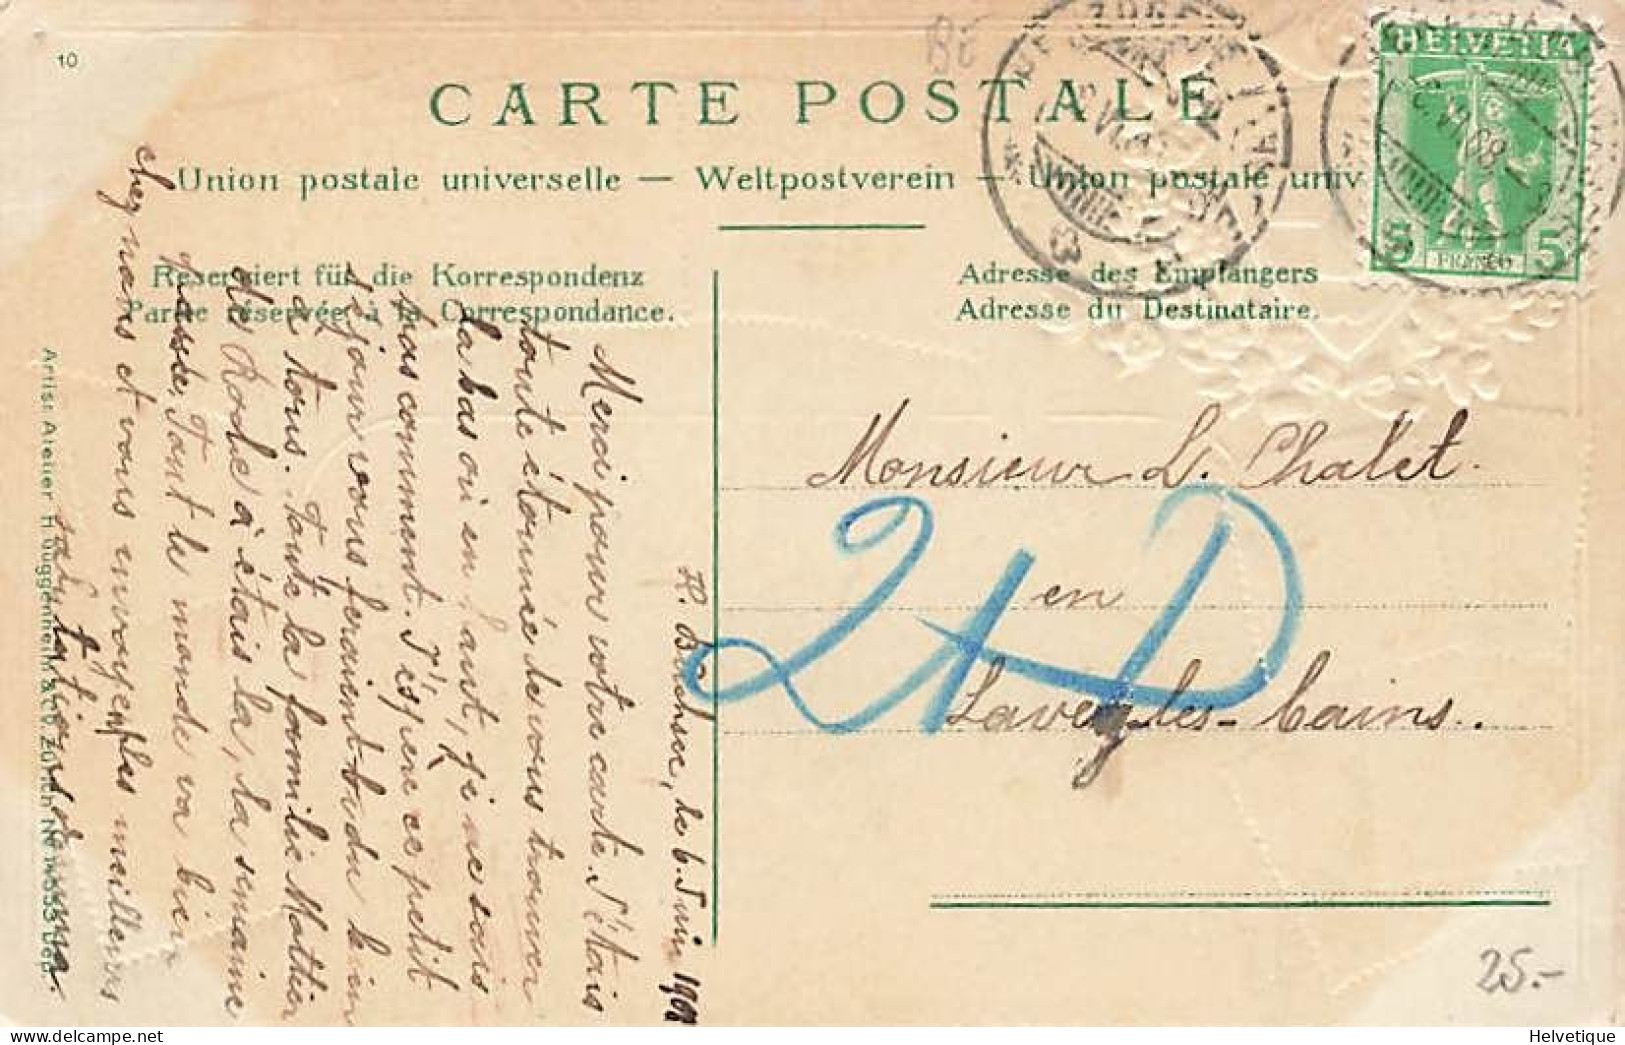 10
CARTE POSTALE
Union postale universelle — Weltpostverein — Union postale univ
HELVETIA
5 5
FRANCO
Reserviert für die Korrespondenz
Partie réservée à la Correspondance.
Adresse des Empfängers
Adresse du Destinataire.
Monsieur L. Chalet.
en
Lavey les-bains.
2+D
le 6. Juin 1908
Merci pour votre carte. J'étais
toute étonnée de vous trouver
la bas où en haut, je ne sais
pas comment. J'espère ce petit
séjour vous feraient bu du bien
à tous. Toute la famille Mottier
des Rode à étais la, la semaine
passée, Tout le monde va bien
chez nous et vous envoyent les meilleurs
salutations
Artist Atelier H. Guggenheim & Co., Zürich No 14553 Dep.
25.-
Helvetique